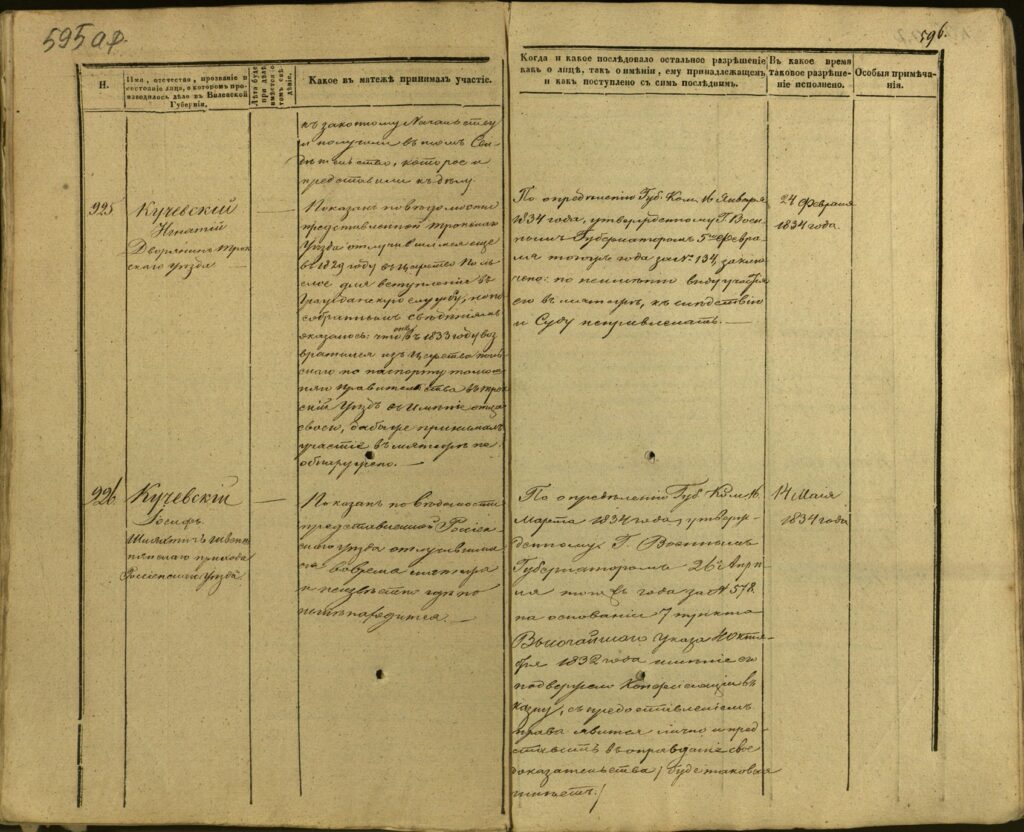 595 а ф.
596.
Н.
Имя, отечество, прозваніе и
состояніе лица, о которомъ про-
изводилось дѣло въ Виленской
Губерніи.
Лѣта буде
при дѣлѣ
имѣется о
томъ свѣ-
дѣніе.
Какое въ матежѣ принималъ участіе.
Когда и какое послѣдовало остальное разрѣшеніе
какъ о лицѣ, такъ о имѣніи, ему принадлежащемъ
и какъ поступлено съ симъ послѣднимъ.
Въ какое время
таковое разрѣше-
ніе исполнено.
Особыя примѣча-
нія.
къ законному Начальству
и получили въ томъ Сви-
дѣтельство, которое и
представили къ дѣлу
925
Кучевскій
Игнатій
Дворянинъ Трок-
скаго уѣзда
Показанъ по вѣдомости
представленной Трокскаго
Уѣзда отлучившимся еще
въ 1829 году въ Царство Поль-
ское для вступленія въ
Гражданскую службу, но по
собраннымъ свѣдѣніямъ
оказалось: что онъ въ 1833 году воз
вратился изъ Царства Поль-
скаго по паспорту тамош-
няго Правительства въ Трок-
скій Уѣздъ въ Имѣніе отца
своего, дабы же принималъ
участіе въ мятежѣ не
обнаружено. —
По опредѣленію Губ. Ком. 16 Января
1834 года, утвержденному Г. Воен-
нымъ Губернаторомъ 5го Февра-
ля того жъ года за № 134, заклю-
чено: по неимѣнію виду участія
его въ мятежѣ, къ слѣдствію
и Суду непривлекать. —
24 Февраля
1834 года
926
Кучевскій
Іосифъ
Шляхтичъ
прихода
Россіенскаго Уѣзда
Показанъ по вѣдомости
представленной Россіен-
скаго уѣзда отлучившим-
ся вовремя мятежа
и неизвѣстно гдѣ по
нынѣ находится. —
По опредѣленію Губ. Ком. 16
Марта 1834 года, утверж-
денному Г. Военнымъ
Губернаторомъ 26го Апрѣ-
ля того жъ года за № 578.
на основаніи 7 пункта
Высочайшаго указа 4 Октя-
бря 1832 года имѣніе его
подвержено Конфискаціи въ
казну, съ предоставленіемъ
права явится лично и пред-
ставить въ оправданіе свое
доказательства / буде таковыя
имѣетъ. /
14 Маія
1834 года